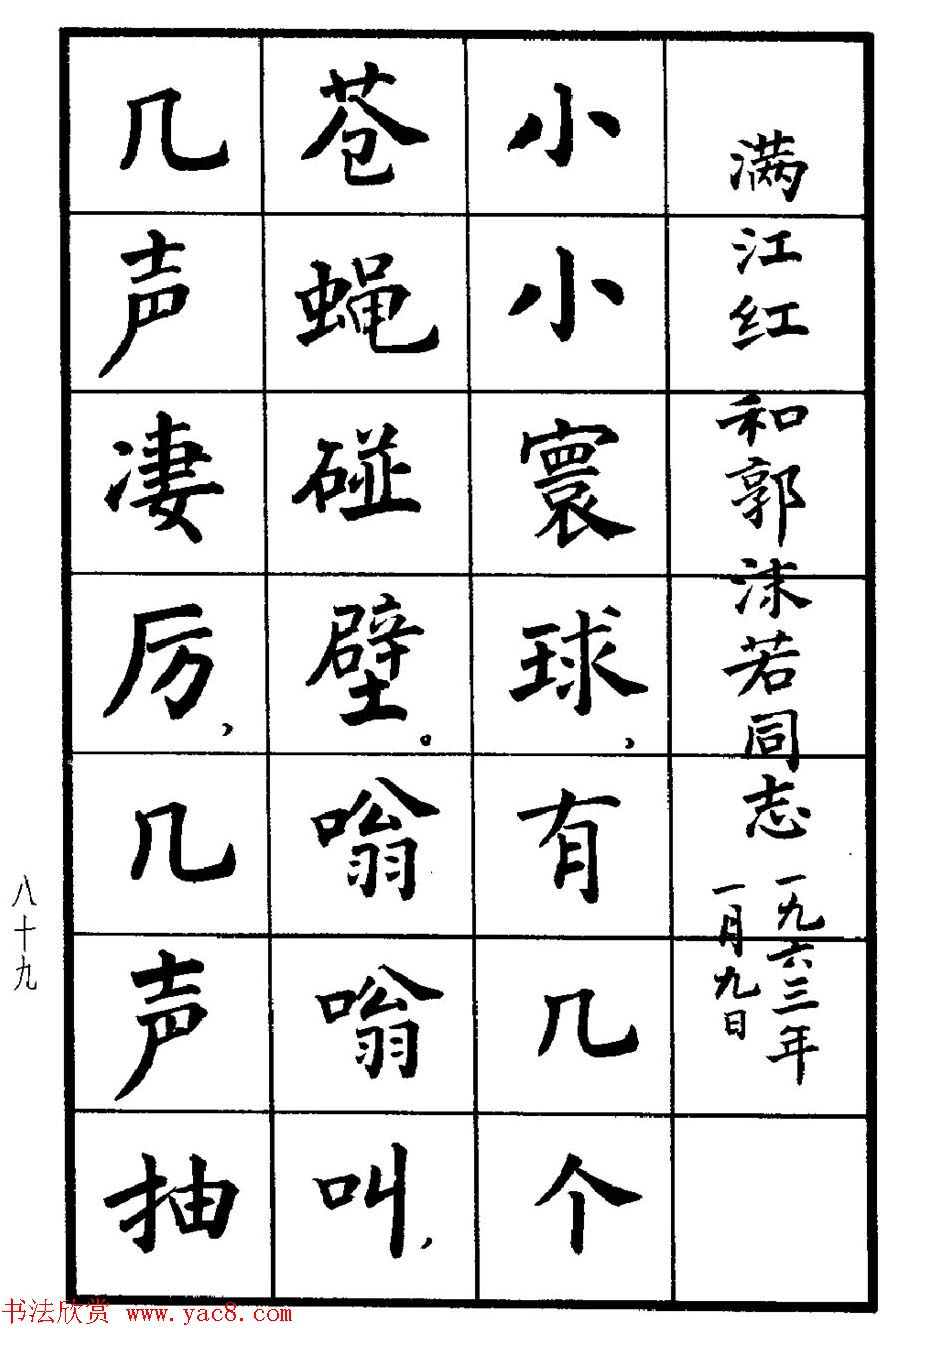 满江红 和郭沫若同志 一九六三年
一月九日
小小寰球，有几个
苍蝇碰壁。嗡嗡叫，
几声凄厉，几声抽
八十九
书法欣赏 www.yac8.com